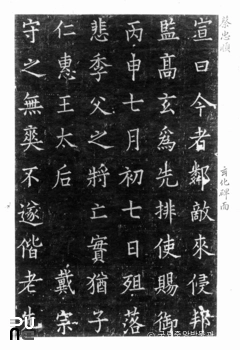 蔡忠順
玄化碑
宣曰今者鄰敵來侵邦
監高玄爲先排使賜御
丙申七月初七日殂落
悲季父之將亡實猶子
仁惠王太后 戴宗
守之無爽不遂偕老
국립중앙박물관